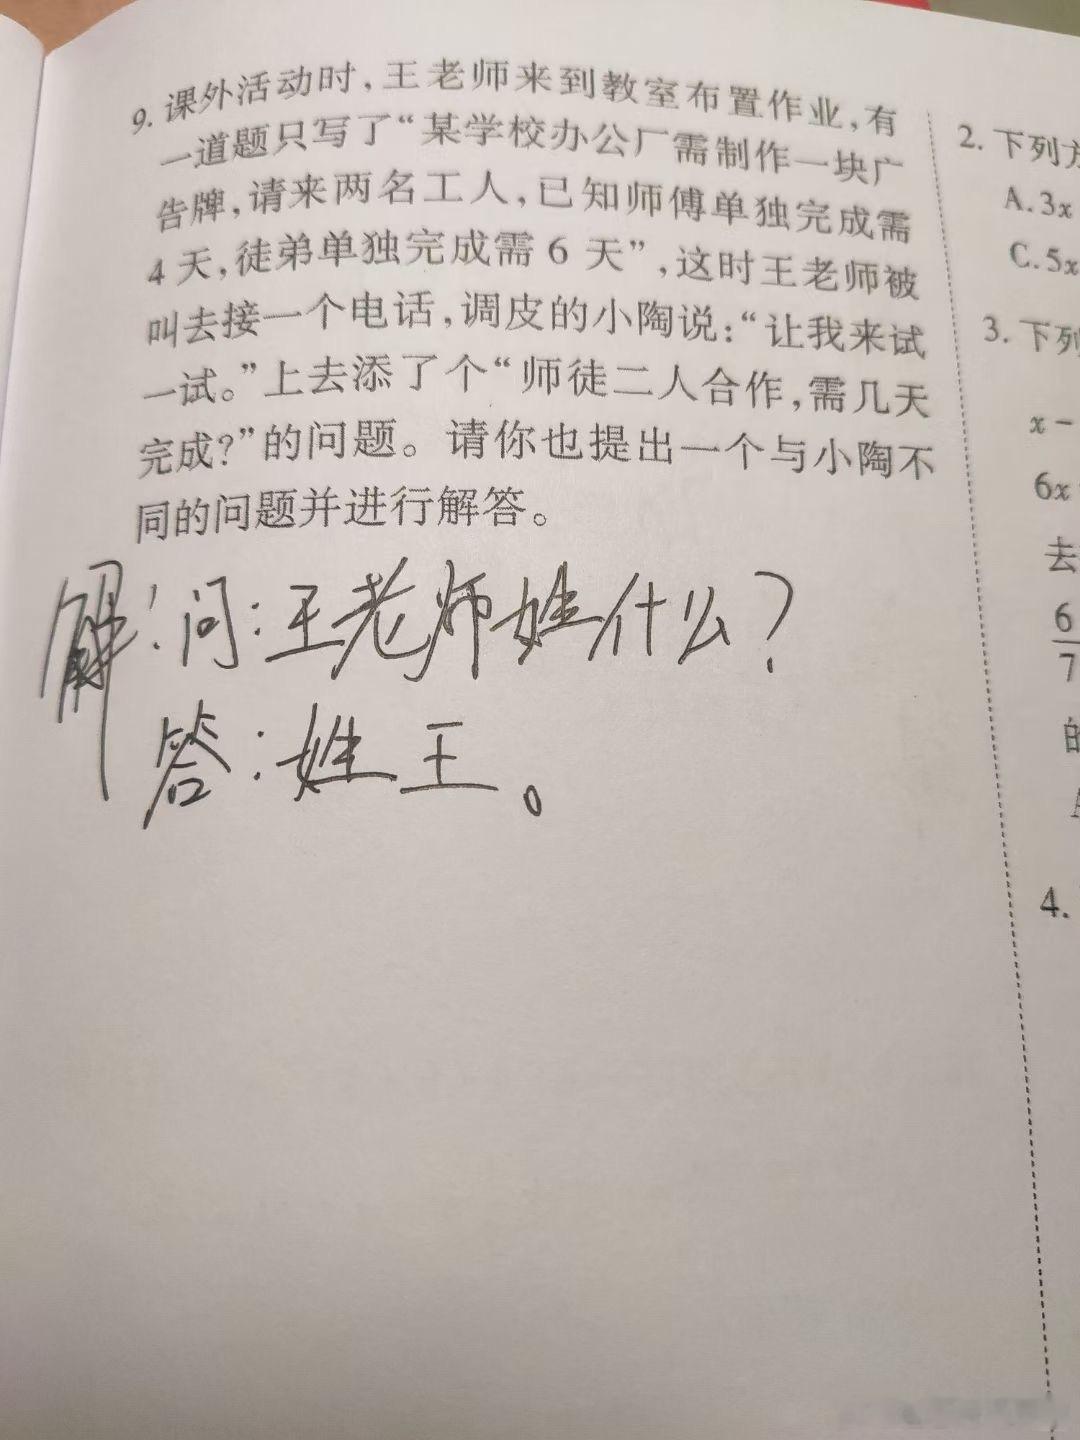 9. 课外活动时,王老师来到教室布置作业,有
一道题只写了“某学校办公厂需制作一块广
告牌,请来两名工人,已知师傅单独完成需
4 天,徒弟单独完成需 6 天”,这时王老师被
叫去接一个电话,调皮的小陶说:“让我来试
一试。”上去添了个“师徒二人合作,需几天
完成?”的问题。请你也提出一个与小陶不
同的问题并进行解答。
解:问:王老师姓什么?
答:姓王。
2. 下列方
A. 3x
C. 5x
3. 下列
x -
6x
去
6
7
的
4.